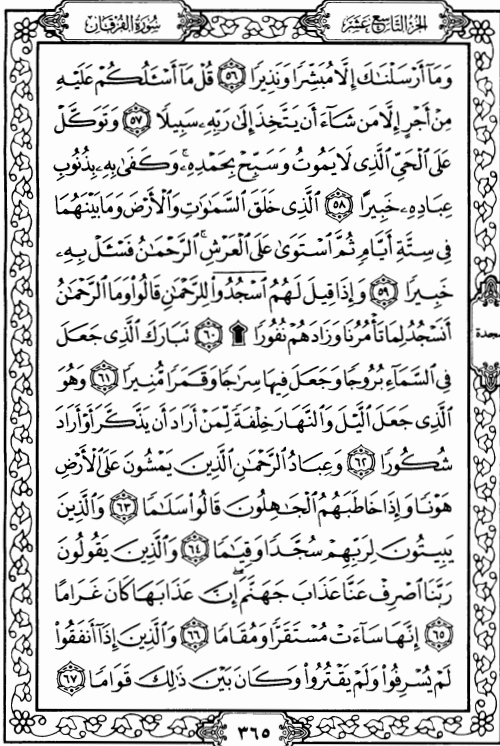 الجزء التاسع عشر سورة الفرقان
وَمَآ أَرْسَلْنَٰكَ إِلَّا مُبَشِّرًا وَنَذِيرًا ٥٦ قُلْ مَآ أَسْـَٔلُكُمْ عَلَيْهِ
مِنْ أَجْرٍ إِلَّا مَن شَآءَ أَن يَتَّخِذَ إِلَىٰ رَبِّهِۦ سَبِيلًا ٥٧ وَتَوَكَّلْ
عَلَى ٱلْحَىِّ ٱلَّذِى لَا يَمُوتُ وَسَبِّحْ بِحَمْدِهِۦ ۚ وَكَفَىٰ بِهِۦ بِذُنُوبِ
عِبَادِهِۦ خَبِيرًا ٥٨ ٱلَّذِى خَلَقَ ٱلسَّمَٰوَٰتِ وَٱلْأَرْضَ وَمَا بَيْنَهُمَا
فِى سِتَّةِ أَيَّامٍ ثُمَّ ٱسْتَوَىٰ عَلَى ٱلْعَرْشِ ۚ ٱلرَّحْمَٰنُ فَسْـَٔلْ بِهِۦ
خَبِيرًا ٥٩ وَإِذَا قِيلَ لَهُمُ ٱسْجُدُوا۟ لِلرَّحْمَٰنِ قَالُوا۟ وَمَا ٱلرَّحْمَٰنُ
أَنَسْجُدُ لِمَا تَأْمُرُنَا وَزَادَهُمْ نُفُورًا ۩ ٦٠ تَبَارَكَ ٱلَّذِى جَعَلَ
سجدة
فِى ٱلسَّمَآءِ بُرُوجًا وَجَعَلَ فِيهَا سِرَٰجًا وَقَمَرًا مُّنِيرًا ٦١ وَهُوَ
ٱلَّذِى جَعَلَ ٱلَّيْلَ وَٱلنَّهَارَ خِلْفَةً لِّمَنْ أَرَادَ أَن يَذَّكَّرَ أَوْ أَرَادَ
شُكُورًا ٦٢ وَعِبَادُ ٱلرَّحْمَٰنِ ٱلَّذِينَ يَمْشُونَ عَلَى ٱلْأَرْضِ
هَوْنًا وَإِذَا خَاطَبَهُمُ ٱلْجَٰهِلُونَ قَالُوا۟ سَلَٰمًا ٦٣ وَٱلَّذِينَ
يَبِيتُونَ لِرَبِّهِمْ سُجَّدًا وَقِيَٰمًا ٦٤ وَٱلَّذِينَ يَقُولُونَ
رَبَّنَا ٱصْرِفْ عَنَّا عَذَابَ جَهَنَّمَ ۖ إِنَّ عَذَابَهَا كَانَ غَرَامًا
٦٥ إِنَّهَا سَآءَتْ مُسْتَقَرًّا وَمُقَامًا ٦٦ وَٱلَّذِينَ إِذَآ أَنفَقُوا۟
لَمْ يُسْرِفُوا۟ وَلَمْ يَقْتُرُوا۟ وَكَانَ بَيْنَ ذَٰلِكَ قَوَامًا ٦٧
٣٦٥